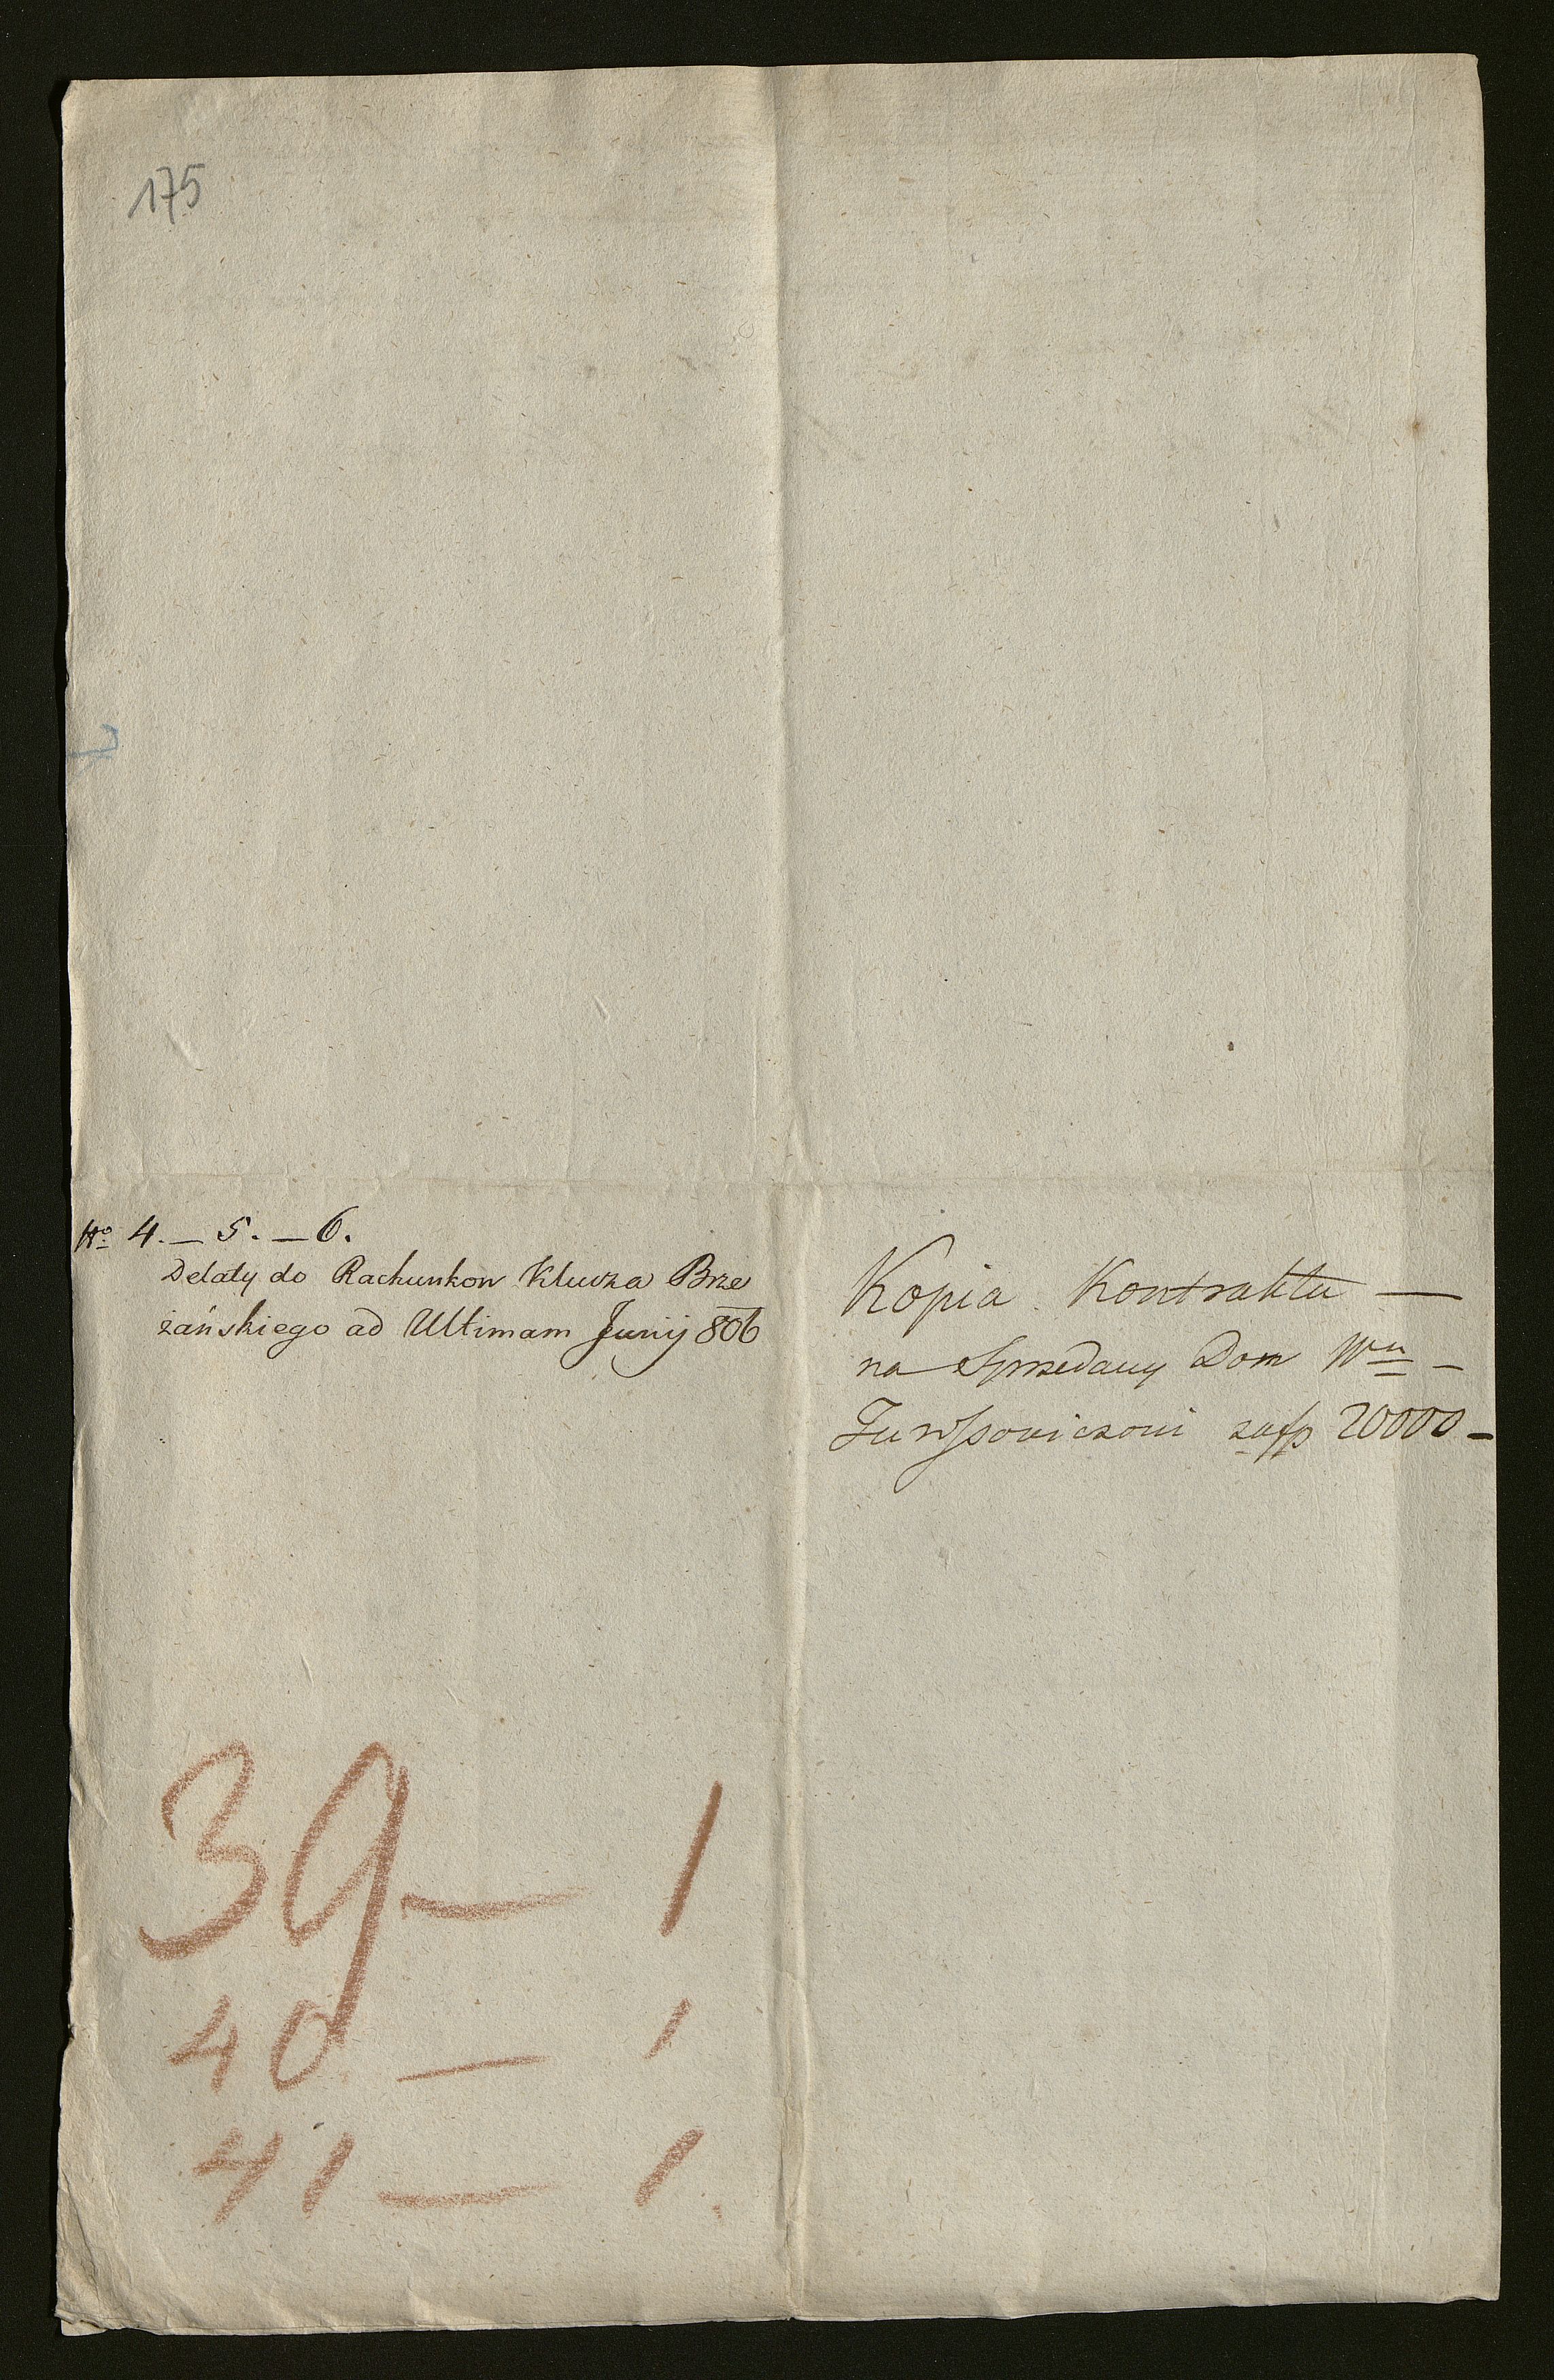 175
No 4. — 5. — 6.
Delaty do Rachunkow Klucza Brze
żańskiego ad Ultimam Junij 806
Kopia Kontraktu —
na Sprzedany Dom Wu —
zafp 20000 —
39 — 1
40 — 1
41 — 1.